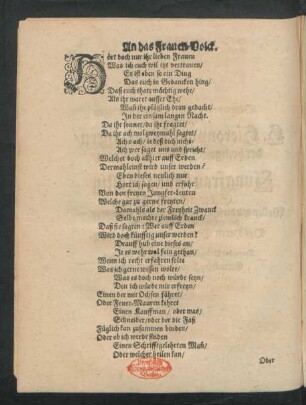 An das Frauen-Volck.
Hört doch nur ihr lieben Frauen
Was ich euch wil itzt vertrauen/
Es ist eben so ein Ding
Das euch in Gedancken hing/
Daß euch thate mächtig wehe/
Als ihr waret ausser Ehe/
Was ihr plötzlich dran gedacht/
In der einsam langen Nacht.
Da ihr
Da ihr ach wol zweymahl sagtet/
Ach wer saget uns und spricht/
Welcher doch allhier auff Erden
Dermahleinst wird unser werden?
Eben dieses neulich nur
Hort ich sagen/ und erfuhr
Von den freyen Jungfer-Leuten
Welche gar zu gerne freyten/
Damahls als der Freyheit Zwanck
Selbe machte ziemlich kranck/
Daß sie sagten: Wer auff Erden
Wird doch künfftig unser werden?
Drauff hub eine dieses an/
Je es wehr wol fein gethan/
Wenn ich recht erfahren solte
Was ich gerne wissen wolte/
Was es doch noch würde seyn/
Den ich würde mir erfreyn/
Einen der mit Ochsen fähret/
Oder Feuer-Mauren kehret
Einen Kauffman/ oder was/
Schneider/ oder der die Faß
Füglich kan zusammen binden/
Oder ob ich werde finden
Einen Schrifftgelehrten Man/
Oder welcher heilen kan/
Oder